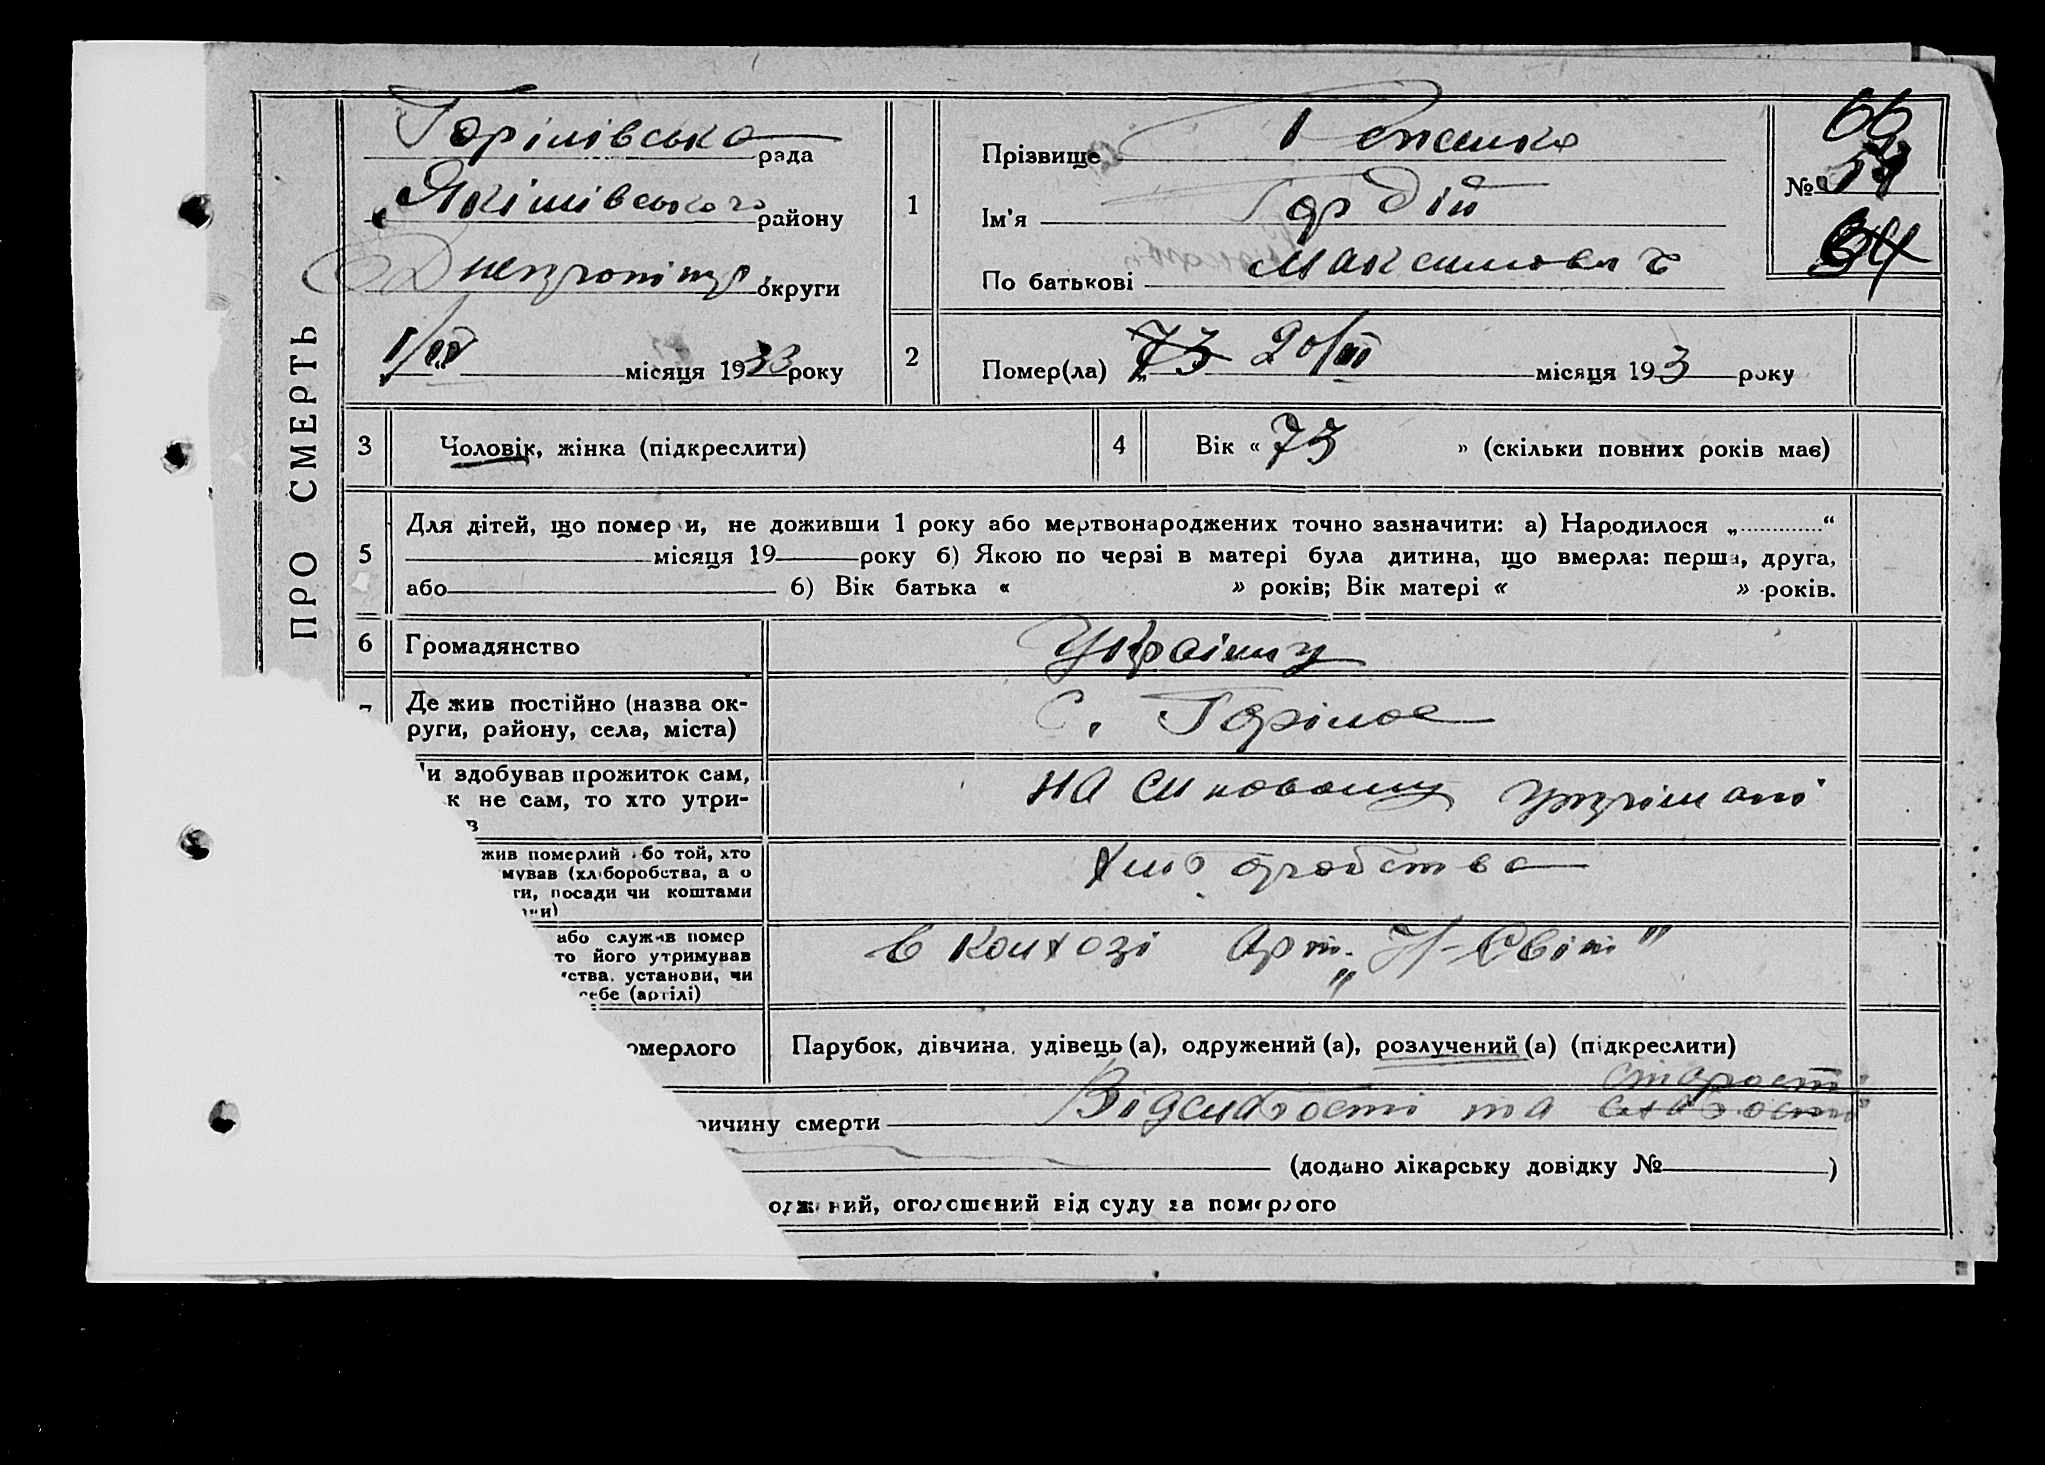 ПРО СМЕРТЬ
Горілівська рада
Якімівського району
Днепропітр. округи
1/IV місяця 1933 року
1
Прізвище
Ім'я Гордій
По батькові Максимович
№
66
54
34
2
Помер(ла) „ 73 20/III місяця 193 3 року
3
Чоловік, жінка (підкреслити)
4
Вік « 73 » (скільки повних років має)
5
Для дітей, що помер и, не доживши 1 року або мертвонароджених точно зазначити: а) Народилося „ “
місяця 19 року б) Якою по черзі в матері була дитина, що вмерла: перша, друга,
або б) Вік батька « » років; Вік матері « » років.
6
Громадянство
Україну
Де жив постійно (назва ок-
руги, району, села, міста)
с. Горілое
и здобував прожиток сам,
к не сам, то хто утри-
в
на синовому утрімані
жив померлий бо той, хто
мував (хліборобства, а о
ти, посади чи коштами
ки)
хліборобства
або служив помер
то його утримував
ства, установи, чи
себе (артілі)
в колхозі Арт. „Н-Світ"
омерлого
Парубок, дівчина, удівець (а), одружений (а), розлучений (а) (підкреслити)
старості
ричину смерти Відслабості та слабості
(додано лікарську довідку № )
оджений, оголошений від суду за померлого